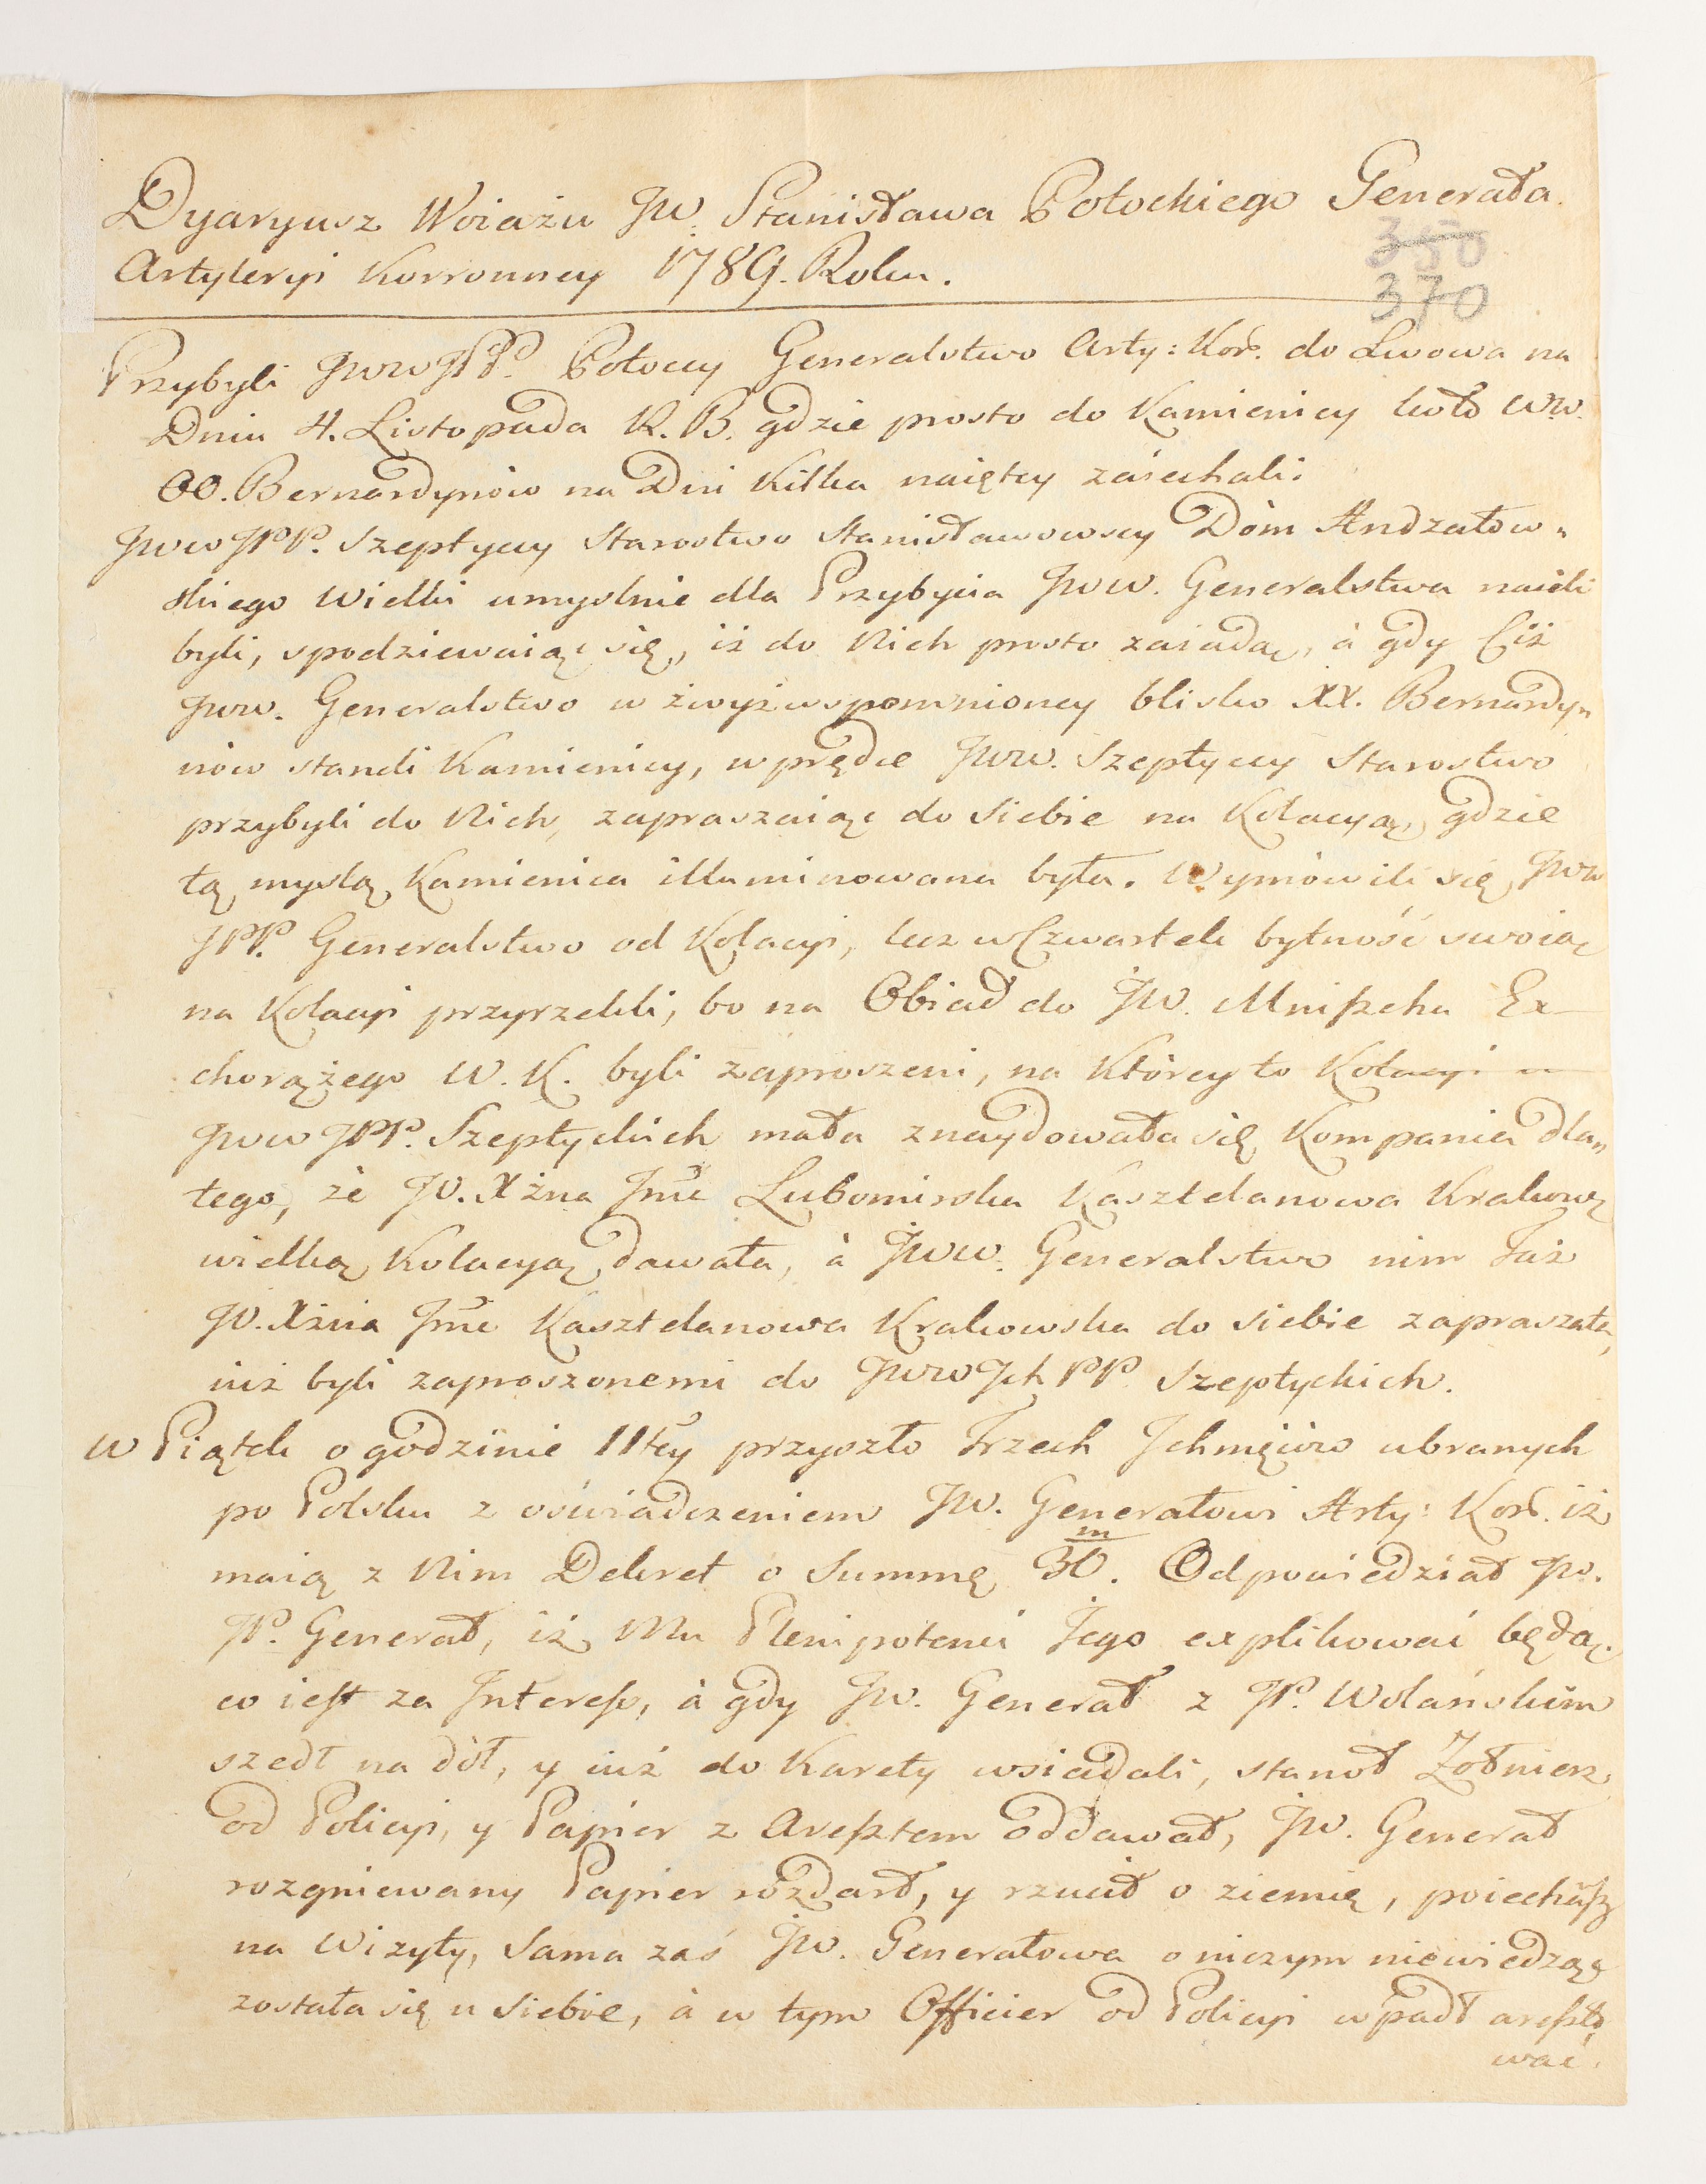 Dyaryusz Woiażu JW. Stanisława Potockiego Generała
Artyleryi Korronney 1789. Roku.
350
370
Przybyli JWWJPP. Potoccy Generalstwo Arty: Kor. do Lwowa na
Dniu 4. Listopada R. B. gdzie prosto do Kamienicy koło WW.
OO. Bernardynów na Dni Kilka naiętey zaiechali.
JWWJPP. Szeptyccy Starostwo Stanisławowscy Dóm Andzałow„
skiego Wielki umyslnie dla Przybycia JWW. Generalstwa naieli
byli, spodziewaiąc się, iż do Nich prosto zaiadą, à gdy Ciż
JWW. Generalstwo w żwyżwspomnioney blisko XX. Bernardy„
nów staneli Kamienicy, w prędce JWW. Szeptyccy Starostwo
przybyli do Nich, zapraszaiąc do Siebie na Kolacyą, gdzie
tą myslą Kamienica illuminowana była. Wymówili się JWW
JPP. Generalstwo od Kolacyi, lecz w Czwartek bytność swoią
na Kolacyi przyrzekli, bo na Obiad do JW. Mniszcha Ex
chorążego W. K. byli zaproszeni, na Którey to Kolacyi u
JWWJPP. Szeptyckich mała znaydowała się Kompania dla„
tego, że JO. Xżna Jmć Lubomirska Kasztelanowa Krakows
wielką Kolacyą dawała, à JWW. Generalstwo nim Taż
JO. Xżna Jmć Kasztelanowa Krakowska do siebie zapraszała,
iuż byli zaproszonemi do JWWJch PP. Szeptyckich.
W Piątek o godzinie 11tey przyszło Trzech Ichmięiów ubranych
po Polsku z oświadczeniem JW. Generałowi Arty: Kor. iż
maią z Nim Dekret o Summę 30.m Odpowiedział JW.
JP. Generał, iż Mu Plenipotenci Jego explikować będą.
co iest za Interess, à gdy JW. Generał z JP. Wolańskim
szedł na dół, y iuż do Karety wsiadali, stanoł Zołnierz
od Policyi, y Papier z Aresztem oddawał, JW. Generał
rozgniewany Papier rozdarł, y rzucił o ziemię, poiechasz
na Wizyty, Sama zaś JW. Generałowa o niczym niewiedzą
została się u Siebie, à w tym Officier od Policyi wpadł areszto
wać.